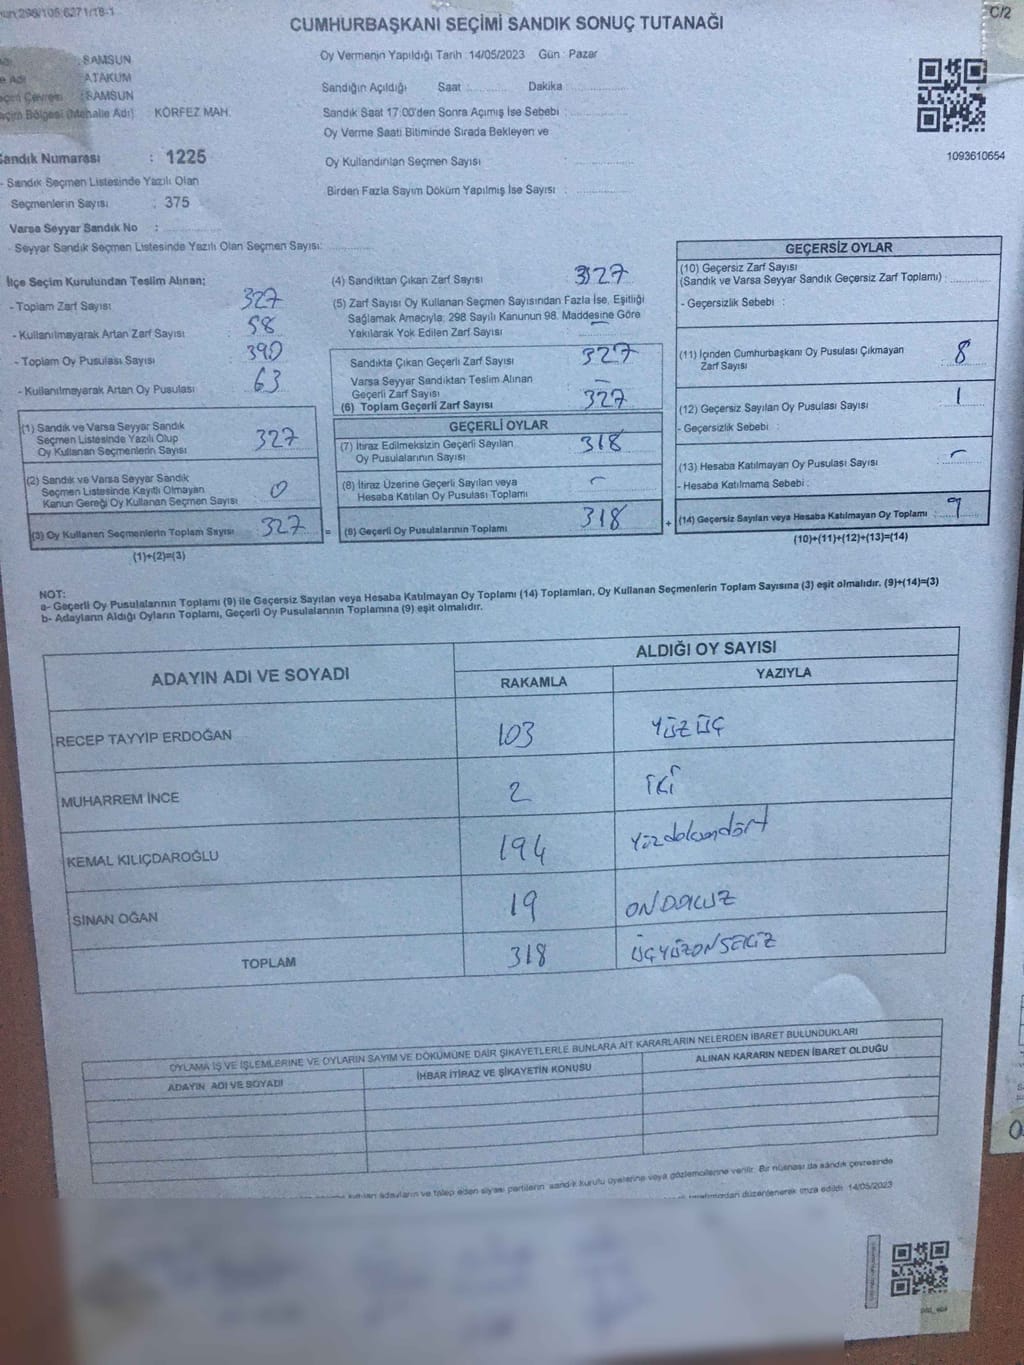 C/2
CUMHURBAŞKANI SEÇİMİ SANDIK SONUÇ TUTANAĞI
: SAMSUN
: ATAKUM
: SAMSUN
(Mahalle Adı) : KÖRFEZ MAH.
Sandık Numarası : 1225
- Sandık Seçmen Listesinde Yazılı Olan
Seçmenlerin Sayısı : 375
Varsa Seyyar Sandık No :
- Seyyar Sandık Seçmen Listesinde Yazılı Olan Seçmen Sayısı:
Oy Vermenin Yapıldığı Tarih : 14/05/2023 Gün : Pazar
Sandığın Açıldığı Saat : Dakika
Sandık Saat 17:00'den Sonra Açılmış İse Sebebi :
Oy Verme Saati Bitiminde Sırada Bekleyen ve
Oy Kullandırılan Seçmen Sayısı :
Birden Fazla Sayım Döküm Yapılmış İse Sayısı :
1093610654
İlçe Seçim Kurulundan Teslim Alınan;
- Toplam Zarf Sayısı : 327
- Kullanılmayarak Artan Zarf Sayısı : 58
- Toplam Oy Pusulası Sayısı : 390
- Kullanılmayarak Artan Oy Pusulası : 63
(1) Sandık ve Varsa Seyyar Sandık
Seçmen Listesinde Yazılı Olup
Oy Kullanan Seçmenlerin Sayısı : 327
(2) Sandık ve Varsa Seyyar Sandık
Seçmen Listesinde Kayıtlı Olmayan
Kanun Gereği Oy Kullanan Seçmen Sayısı : 0
(3) Oy Kullanan Seçmenlerin Toplam Sayısı : 327 =
(1)+(2)=(3)
(4) Sandıktan Çıkan Zarf Sayısı : 327
(5) Zarf Sayısı Oy Kullanan Seçmen Sayısından Fazla İse, Eşitliği
Sağlamak Amacıyla; 298 Sayılı Kanunun 98. Maddesine Göre
Yakılarak Yok Edilen Zarf Sayısı : –
Sandıkta Çıkan Geçerli Zarf Sayısı : 327
Varsa Seyyar Sandıktan Teslim Alınan
Geçerli Zarf Sayısı : –
(6) Toplam Geçerli Zarf Sayısı : 327
GEÇERLİ OYLAR
(7) İtiraz Edilmeksizin Geçerli Sayılan
Oy Pusulalarının Sayısı : 318
(8) İtiraz Üzerine Geçerli Sayılan veya
Hesaba Katılan Oy Pusulası Toplamı : –
(9) Geçerli Oy Pusulalarının Toplamı : 318 +
GEÇERSİZ OYLAR
(10) Geçersiz Zarf Sayısı
(Sandık ve Varsa Seyyar Sandık Geçersiz Zarf Toplamı) :
- Geçersizlik Sebebi :
(11) İçinden Cumhurbaşkanı Oy Pusulası Çıkmayan
Zarf Sayısı : 8
(12) Geçersiz Sayılan Oy Pusulası Sayısı : 1
- Geçersizlik Sebebi :
(13) Hesaba Katılmayan Oy Pusulası Sayısı : –
- Hesaba Katılmama Sebebi :
(14) Geçersiz Sayılan veya Hesaba Katılmayan Oy Toplamı : 9
(10)+(11)+(12)+(13)=(14)
NOT:
a- Geçerli Oy Pusulalarının Toplamı (9) ile Geçersiz Sayılan veya Hesaba Katılmayan Oy Toplamı (14) Toplamları, Oy Kullanan Seçmenlerin Toplam Sayısına (3) eşit olmalıdır. (9)+(14)=(3)
b- Adayların Aldığı Oyların Toplamı, Geçerli Oy Pusulalarının Toplamına (9) eşit olmalıdır.
ADAYIN ADI VE SOYADI
ALDIĞI OY SAYISI
RAKAMLA YAZIYLA
RECEP TAYYİP ERDOĞAN 103 YÜZ ÜÇ
MUHARREM İNCE 2 İKİ
KEMAL KILIÇDAROĞLU 194 Yüzdoksandört
SİNAN OĞAN 19 ONDOKUZ
TOPLAM 318 ÜÇYÜZONSEKİZ
OYLAMA İŞ VE İŞLEMLERİNE VE OYLARIN SAYIM VE DÖKÜMÜNE DAİR ŞİKAYETLERLE BUNLARA AİT KARARLARIN NELERDEN İBARET BULUNDUKLARI
ADAYIN ADI VE SOYADI İHBAR İTİRAZ VE ŞİKAYETİN KONUSU ALINAN KARARIN NEDEN İBARET OLDUĞU
adayların ve talep eden siyasi partilerin sandık kurulu üyelerine veya gözlemcilerine verilir. Bir nüshası da sandık çevresinde
düzenlenerek imza edildi. 14/05/2023